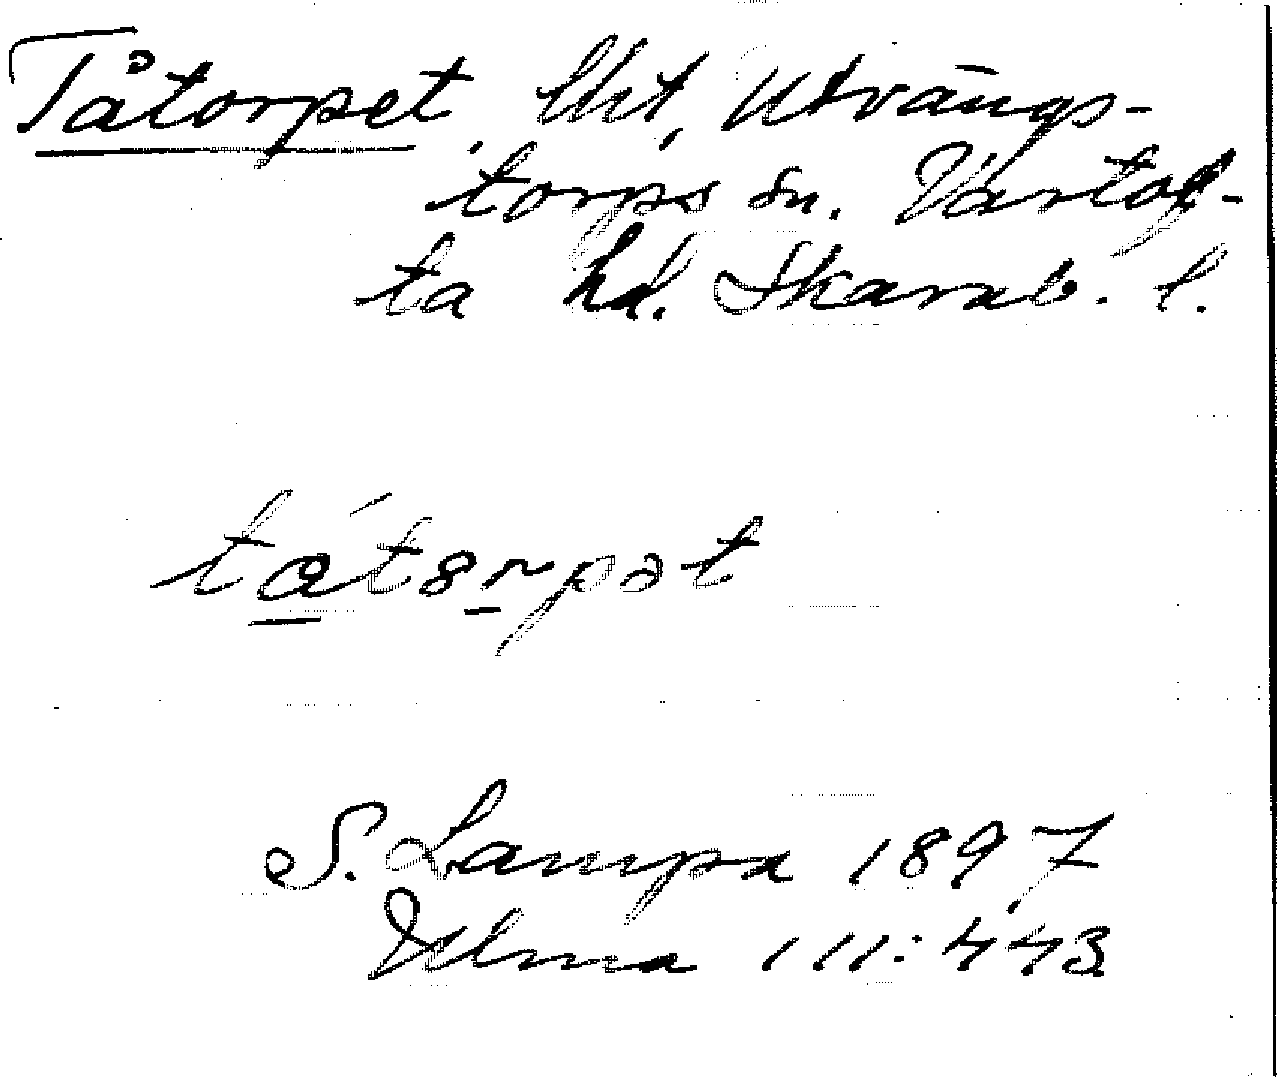 Tåtorpet, lht, Utvängs-
torps sn. Vartof-
ta hd. Skarab. l.
tåtorpət
S. Lampa 1897
Ulma 111:443